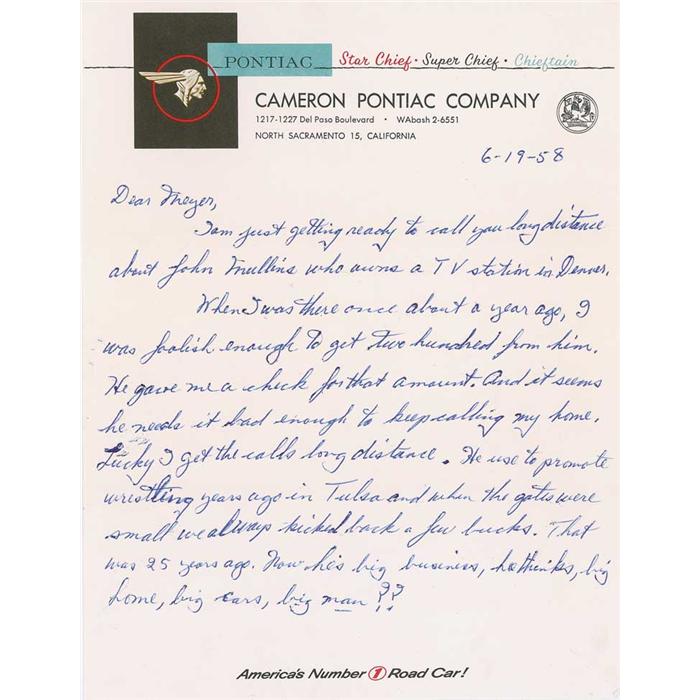 PONTIAC Star Chief · Super Chief · Chieftain
CAMERON PONTIAC COMPANY
1217-1227 Del Paso Boulevard • WAbash 2-6551
NORTH SACRAMENTO 15, CALIFORNIA
6-19-58
Dear Meyer,
I am just getting ready to call you long distance
about John Mullins who owns a TV station in Denver.
When I was there once about a year ago, I
was foolish enough to get two hundred from him.
He gave me a check for that amount. And it seems
he needs it bad enough to keep calling my home.
Lucky I get the calls long distance. He use to promote
wrestling years ago in Tulsa and when the gates were
small we always kicked back a few bucks. That
was 25 years ago. Now he's big business, he thinks, big
home, big cars, big man ??
America's Number 1 Road Car!